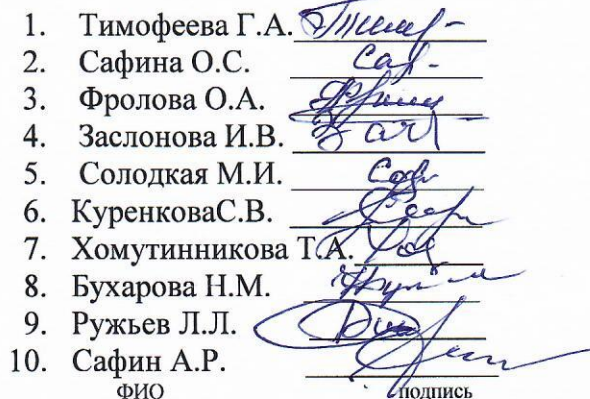 1. Тимофеева Г.А.
2. Сафина О.С. Саф-
3. Фролова О.А.
4. Заслонова И.В. Засл
5. Солодкая М.И.
6. КуренковаС.В.
7. Хомутинникова Т.А.
8. Бухарова Н.М.
9. Ружьев Л.Л.
10. Сафин А.Р.
ФИО подпись